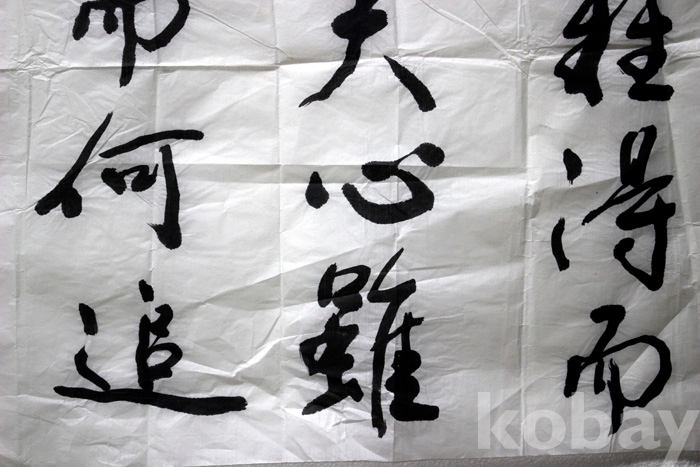 難得而
失心雖
而何追
kobay